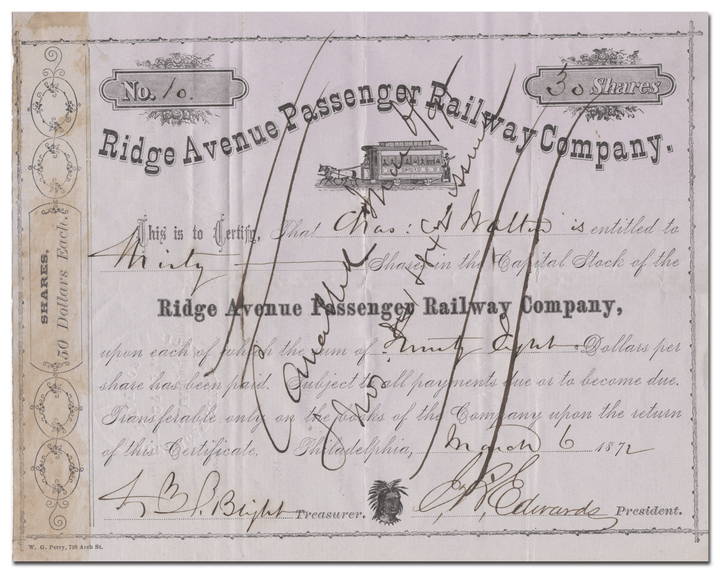 No. 10.
30 Shares
Ridge Avenue Passenger Railway Company.
This is to Certify, That Chas: W Walton is entitled to
Thirty Shares in the Capital Stock of the
Ridge Avenue Passenger Railway Company,
upon each of which the sum of Twenty Eight Dollars per
share has been paid. Subject to all payments due or to become due.
Transferable only on the books of the Company upon the return
of this Certificate. Philadelphia, March 6 1872
Bright Treasurer.
Edwards President.
SHARES,
50 Dollars Each.
Cancelled
issued
W. G. Perry, 728 Arch St.